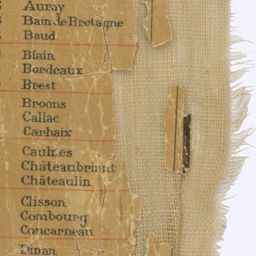 Auray
Bain de Bretagne
Baud
Blain
Bordeaux
Brest
Broons
Callac
Carhaix
Caulnes
Châteaubriant
Châteaulin
Clisson
Combourg
Concarneau
Dinan